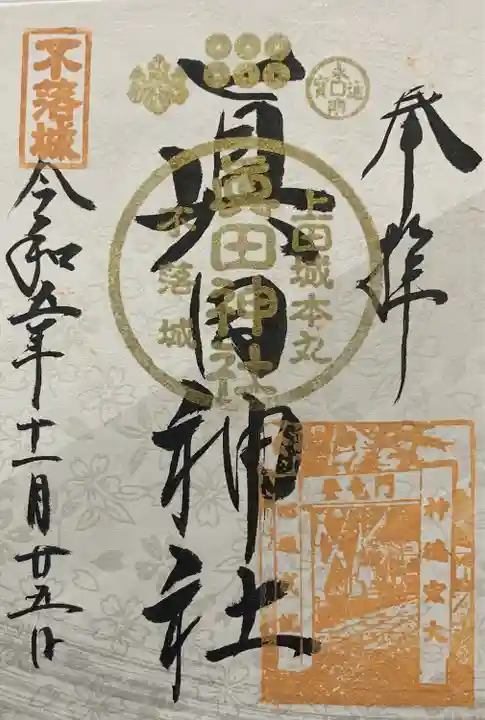 奉拝
眞田神社
上田城本丸
眞田神社
不落城
不落城
令和五年十一月廿五日